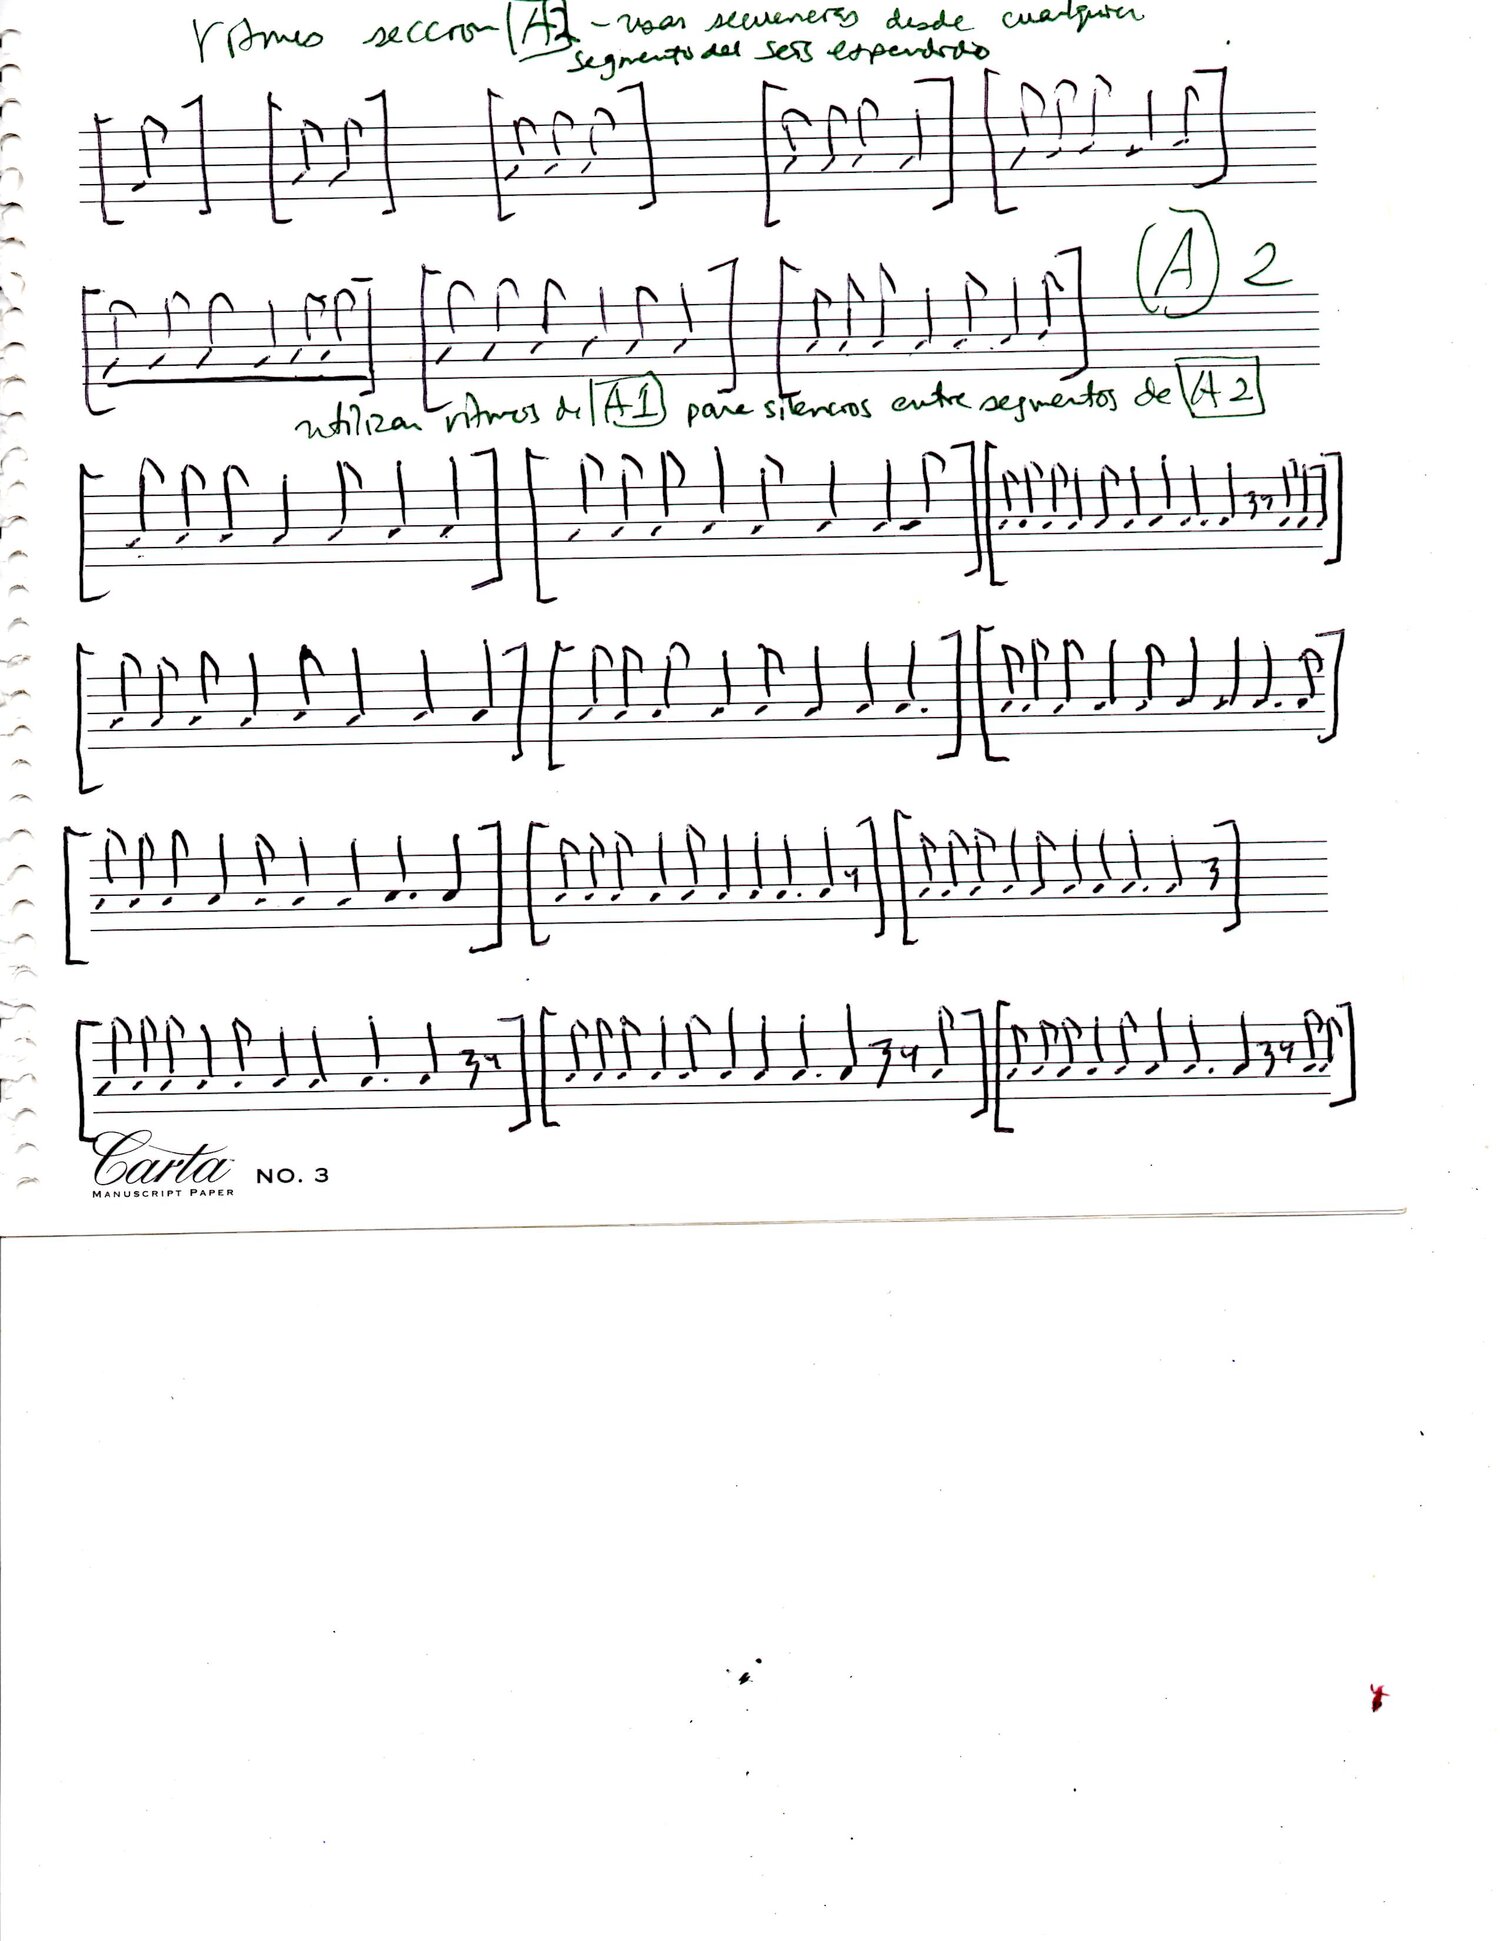 ritmos seccion A2 - usar secuencias desde cualquier
segmento del seis expandido
A 2
utilizar ritmos de A1 para silencios entre segmentos de A2
Carta NO. 3
MANUSCRIPT PAPER